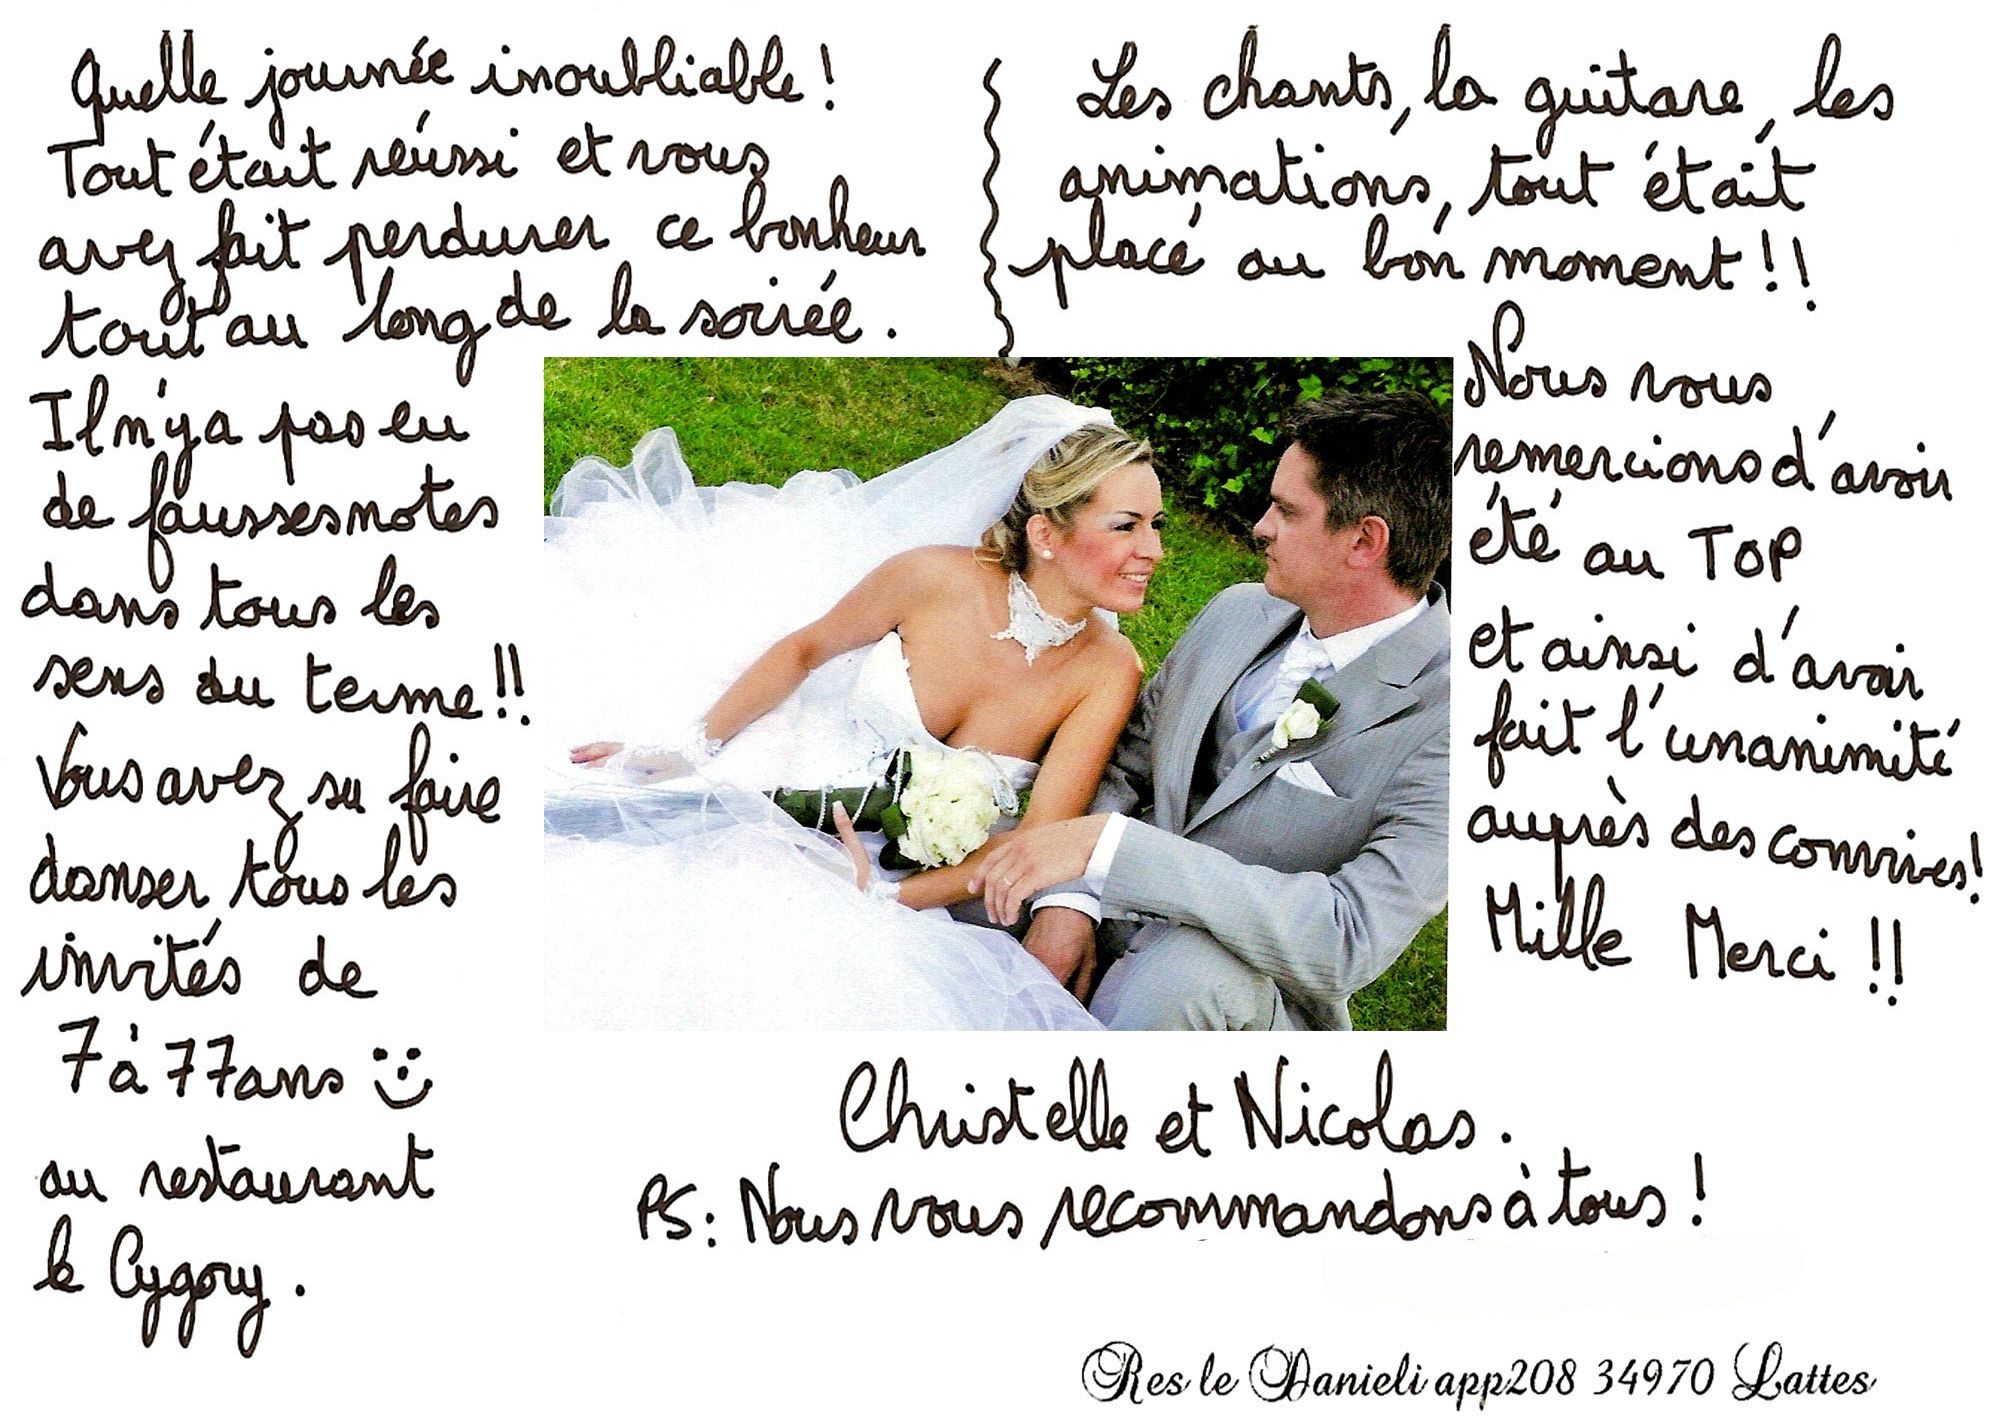 Quelle journée inoubliable !
Tout était réussi et vous
avez fait perdurer ce bonheur
tout au long de la soirée.
Il n'y a pas eu
de fausses notes
dans tous les
sens du terme !!
Vous avez su faire
danser tous les
invités de
7 à 77 ans
au restaurant
le Cygory.
Les chants, la guitare, les
animations, tout était
placé au bon moment !!
Nous vous
remercions d'avoir
été au TOP
et ainsi d'avoir
fait l'unanimité
auprès des convives !
Mille Merci !!
Christelle et Nicolas.
PS : Nous vous recommandons à tous !
Res le Danieli app208 34970 Lattes